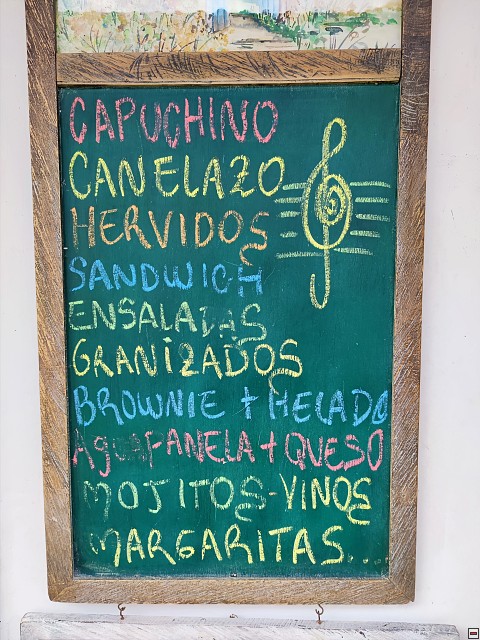 CAPUCHINO
CANELAZO
HERVIDOS
SANDWICH
ENSALADAS
GRANIZADOS
BROWNIE + HELADO
AguaPANELA + QUESO
MOJITOS - VINOS
MARGARITAS...